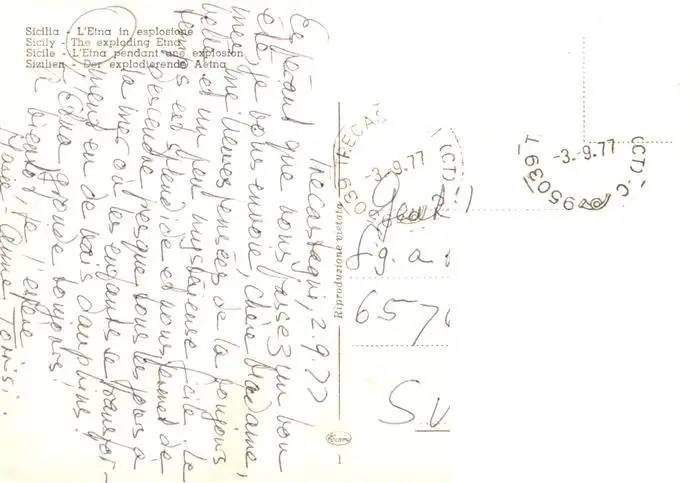 Sicilia - L'Etna in esplosione
Sicily - The exploding Etna
Sicile - L'Etna pendant une explosion
Sizilien - Der explodierende Aetna
Trecastagni, 2.9.77
Espérant que vous passez un bon
été, je vous envoie, chère Madame,
mes meilleures pensées de la toujours
belle et un peu mystérieuse Sicile. Le
temps est splendide et nous permet de
descendre presque tous les jours à
la mer où les enfants se transfor-
ment en de vrais dauphins!
L'Etna gronde toujours.
A bientôt, je l'espère
Marie-Anne Torrisi.
Riproduzione vietata
1
TRECAS
95039
(CT)
-3.-9.77
95039 T
(CT)
-3.-9.77
657